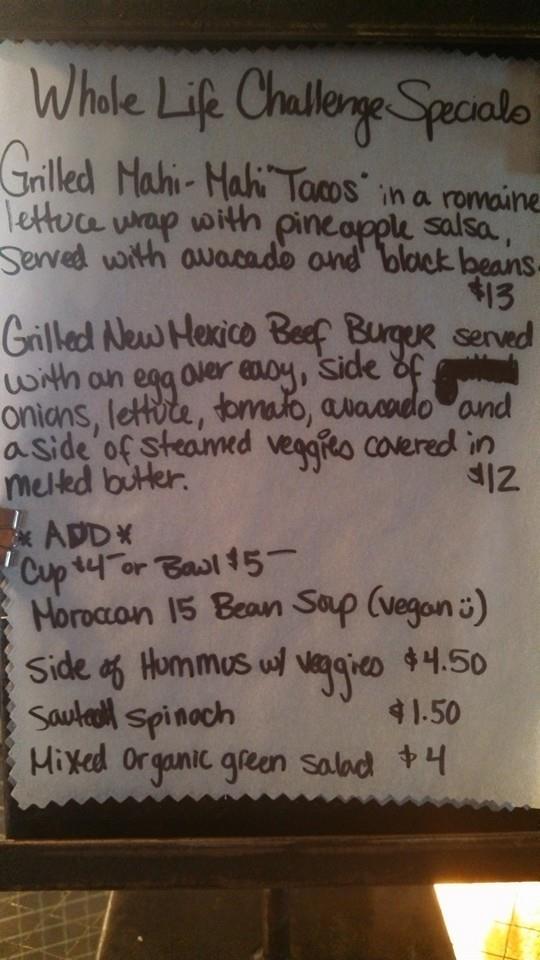 Whole Life Challenge Specials
Grilled Mahi-Mahi "Tacos" in a romaine
lettuce wrap with pineapple salsa,
Served with avacado and black beans.
$13
Grilled New Mexico Beef Burger served
with an egg over easy, side of
onions, lettuce, tomato, avacado and
a side of steamed veggies covered in
melted butter. $12
* ADD *
Cup $4- or Bowl $5-
Moroccan 15 Bean Soup (vegan ü)
Side of Hummus w/ veggies $4.50
Spinach $1.50
Mixed Organic green salad $4